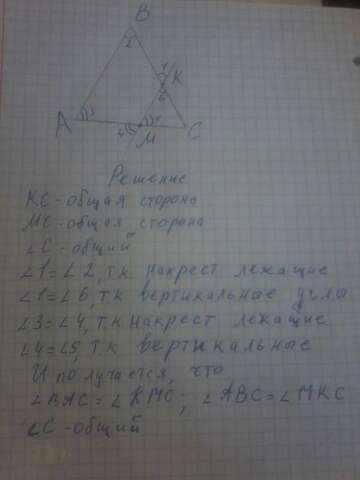 B
2
1
K
6
A
3
4
5
M
C
Решение
КС - общая сторона
МС - общая сторона
∠С - общий
∠1 = ∠2, т.к накрест лежащие
∠1 = ∠6, т.к вертикальные углы
∠3 = ∠4, т.к накрест лежащие
∠4 = ∠5, т.к вертикальные
И получается, что
∠BAC = ∠KMC; ∠ABC = ∠MKC
∠C - общий